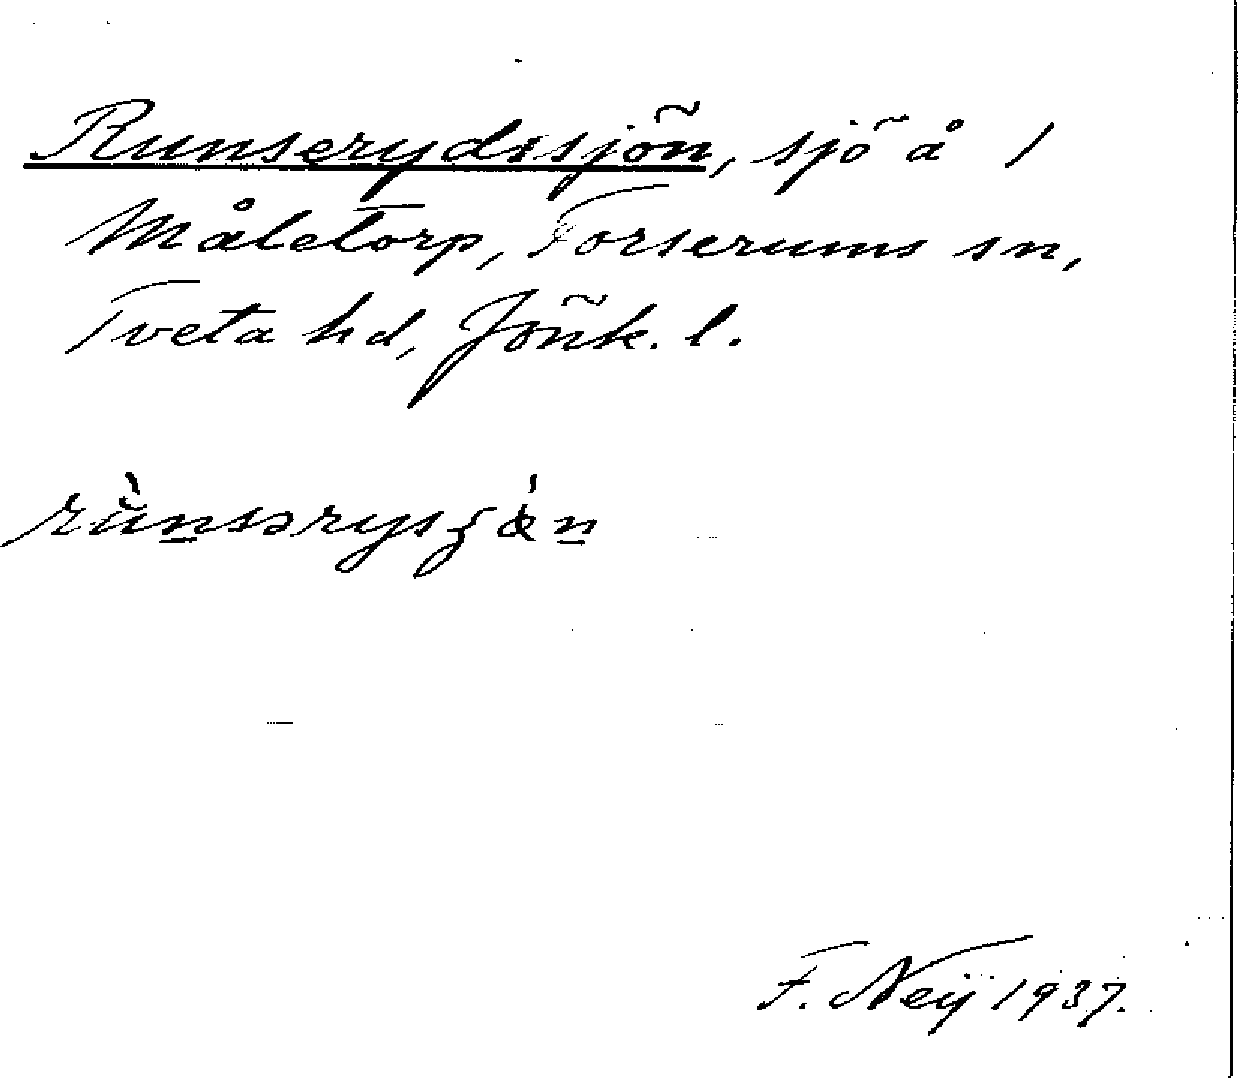 Runserydssjön, sjö å 1
Måletorp, Forserums sn,
Tveta hd, Jönk. l.
rùnsərysʃán
F. Neij 1937.